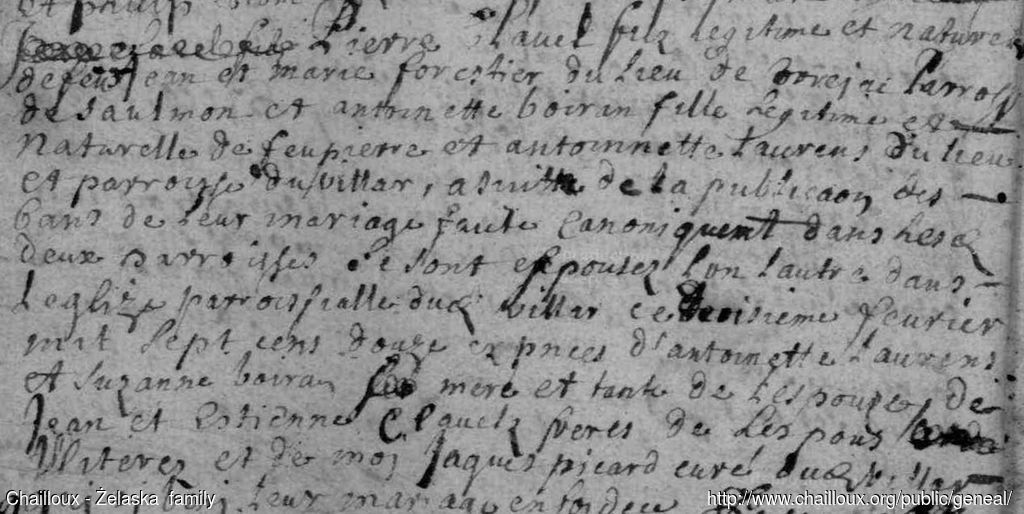 Pierre filz legitime et naturel
de feus Jean et marie forestier du lieu de parroisse
de saulmon et antoinette boiran fille legitime et
naturelle de feu pierre et antoinnette Laurens du lieu
et parroisse du villar, a suitte de la publicaon des
bans de leur mariage faite canoniquemt dans lesd
deux parroisses se sont espousez lun lautre dans
leglize parroissialle dud villar ce troisieme feurier
mil sept cens douze ez pnces d'antoinette Laurens
et suzanne boiran mere et tante de lespouze, de
Jean et Estienne freres de lespouz
illiterez et de moy Jaques picard curé dud villar
leur mariage
Chailloux - Żelaska family
http://www.chailloux.org/public/geneal/